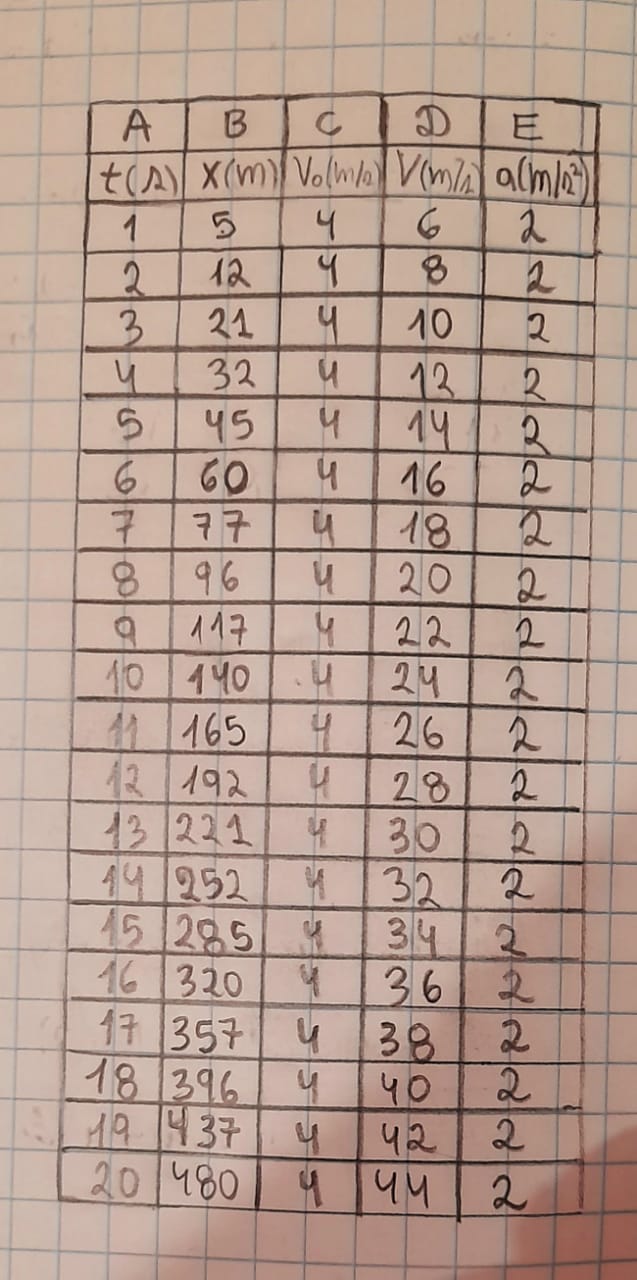 A B C D E
t(s) x(m) V₀(m/s) V(m/s) a(m/s²)
1 5 4 6 2
2 12 4 8 2
3 21 4 10 2
4 32 4 12 2
5 45 4 14 2
6 60 4 16 2
7 77 4 18 2
8 96 4 20 2
9 117 4 22 2
10 140 4 24 2
11 165 4 26 2
12 192 4 28 2
13 221 4 30 2
14 252 4 32 2
15 285 4 34 2
16 320 4 36 2
17 357 4 38 2
18 396 4 40 2
19 437 4 42 2
20 480 4 44 2